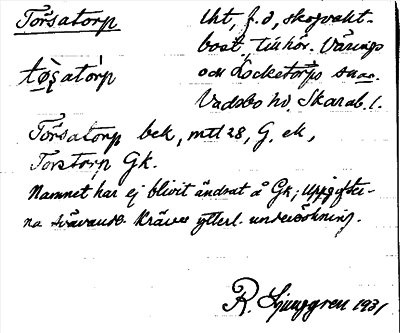 Törsatorp lht, f. d, skogvakt-
bost, tillhör. Värings
tøʂatòrp och Locketorps snar.
Vadsbo hd. Skarab. l.
Törsatorp bek, mtl 28, G. ek,
Torstorp Gk.
Namnet har ej blivit ändrat å Gk; uppgifter-
na svävande. Kräver ytterl. undersökning.
R. Ljunggren 1931